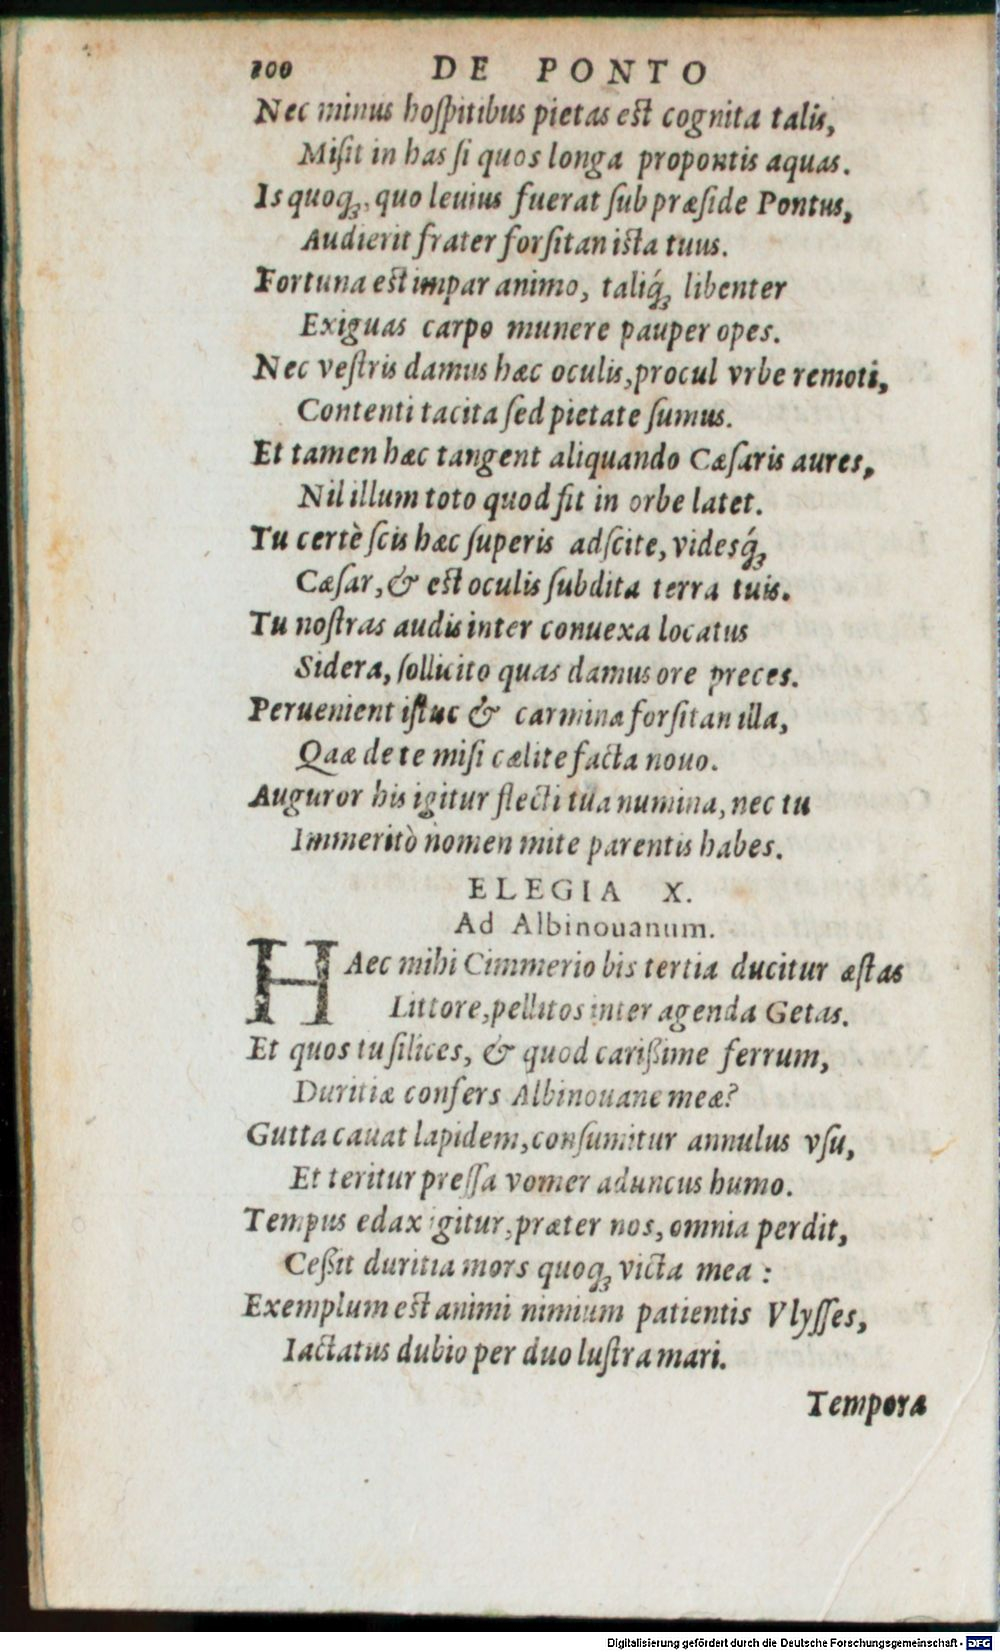 100 DE PONTO
Nec minus hoſpitibus pietas eſt cognita talis,
Miſit in has ſi quos longa propontis aquas.
Is quoq̃, quo leuius fuerat ſub præſide Pontus,
Audierit frater forſitan iſta tuus.
Fortuna eſt impar animo, taliq́ꝫ libenter
Exiguas carpo munere pauper opes.
Nec veſtris damus hæc oculis, procul vrbe remoti,
Contenti tacita ſed pietate ſumus.
Et tamen hæc tangent aliquando Cæſaris aures,
Nil illum toto quod fit in orbe latet.
Tu certè ſcis hæc ſuperis adſcite, videsq́ꝫ
Cæſar, & eſt oculis ſubdita terra tuis.
Tu noſtras audis inter conuexa locatus
Sidera, ſollicito quas damus ore preces.
Peruenient iſtuc & carmina forſitan illa,
Qaæ de te miſi cælite facta nouo.
Auguror his igitur flecti tua numina, nec tu
Immeritò nomen mite parentis habes.
ELEGIA X.
Ad Albinouanum.
HAec mihi Cimmerio bis tertia ducitur æſtas
Littore, pellitos inter agenda Getas.
Et quos tu ſilices, & quod carißime ferrum,
Duritiæ confers Albinouane meæ?
Gutta cauat lapidem, conſumitur annulus vſu,
Et teritur preſſa vomer aduncus humo.
Tempus edax igitur, præter nos, omnia perdit,
Ceßit duritia mors quoqꝫ victa mea :
Exemplum eſt animi nimium patientis Vlyſſes,
Iactatus dubio per duo luſtra mari.
Tempora
Digitalisierung gefördert durch die Deutsche Forschungsgemeinschaft - DFG